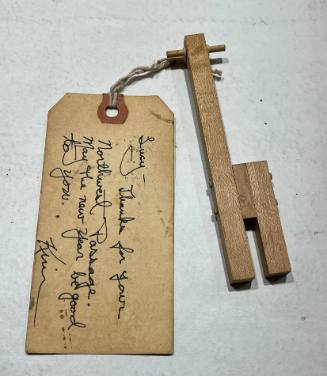 Lucy - Thanks for your
Northwest Passage.
May the new year be good
to you.
Kim